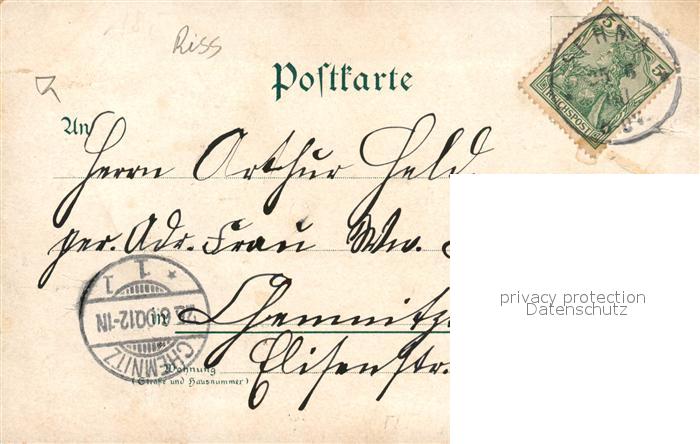 Riss
Postkarte
5 5
REICHSPOST
An
Herrn Arthur Held
per. Adr. Frau Ww.
in Chemnitz
Elisenstr.
Wohnung
(Straße und Hausnummer)
6
1 * 1
23.6.00.12-1N
CHEMNITZ
privacy protection
Datenschutz